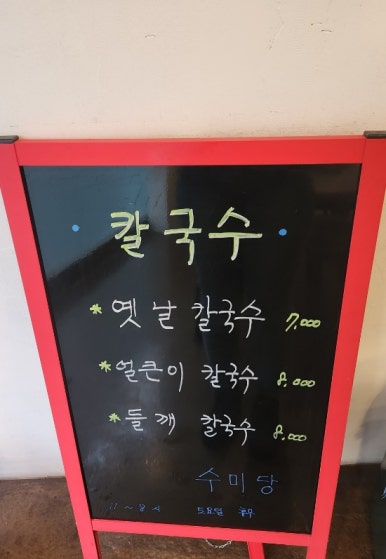 · 칼국수 ·
* 옛날 칼국수 7,000
* 얼큰이 칼국수 8,000
* 들깨 칼국수 8,000
수미당
11 ~ 8시 토요일 휴무